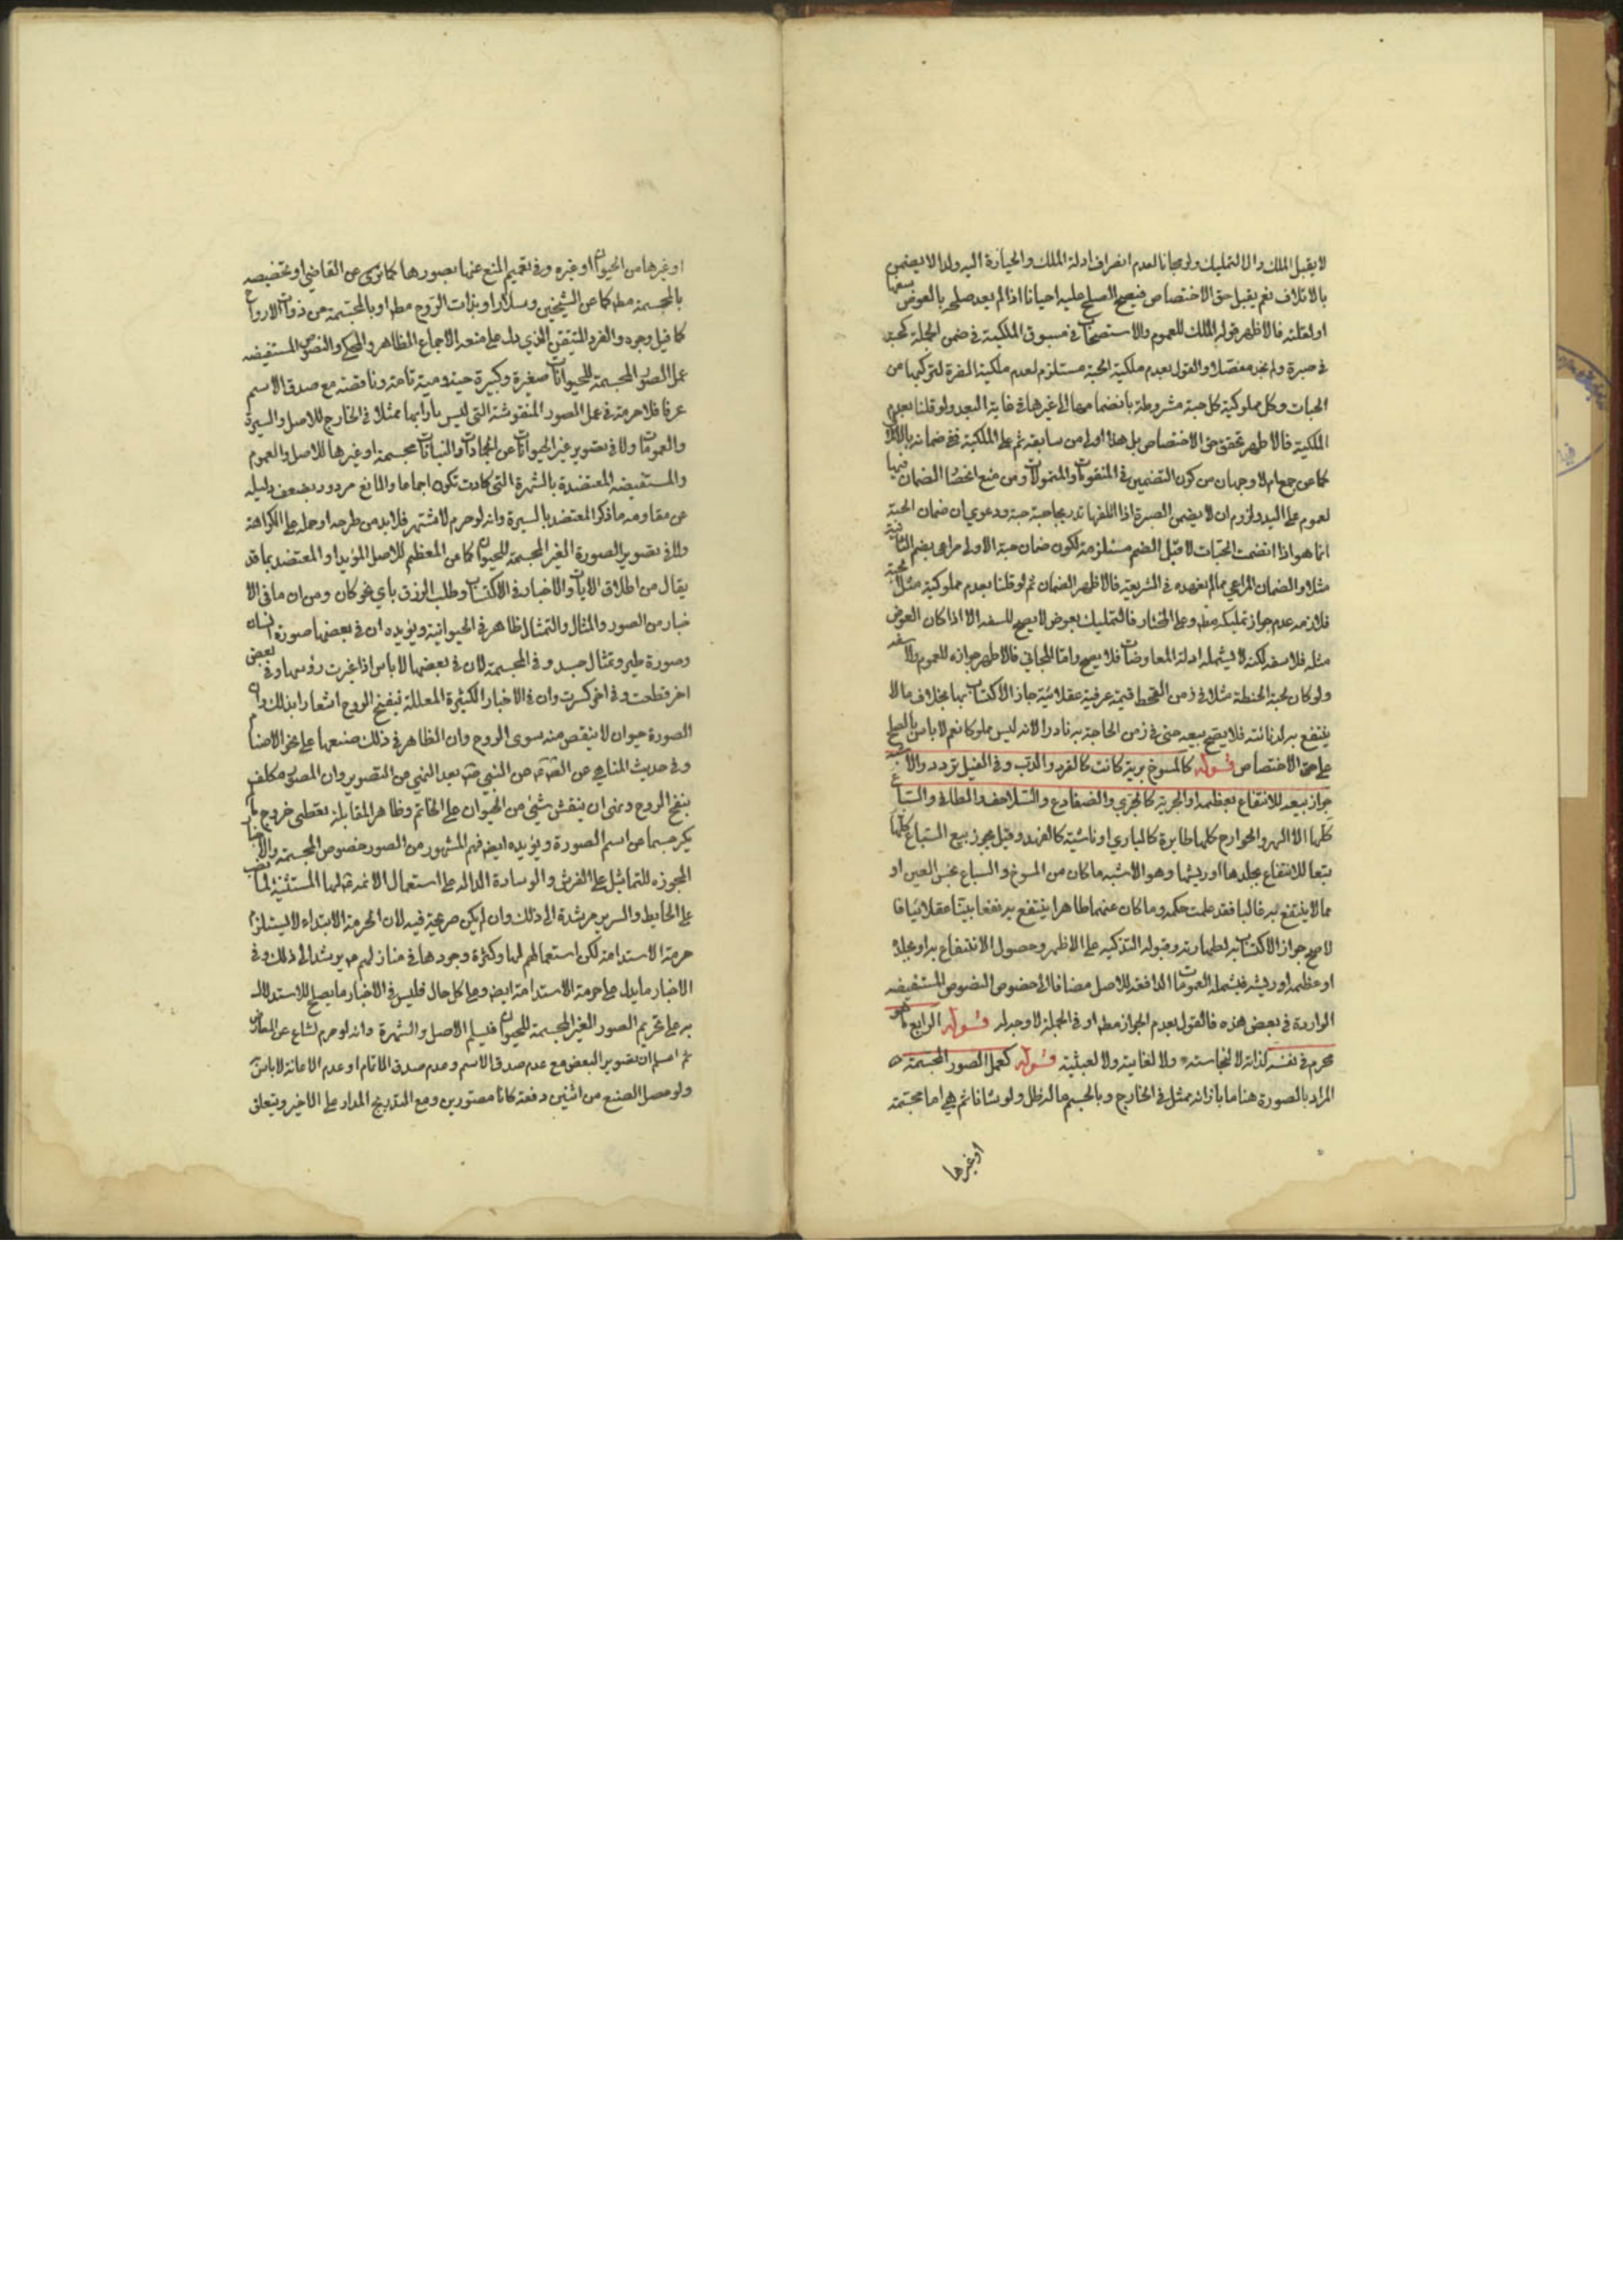 لا يقبل الملك والا التمليك ولو مجانا لعدم انصراف ادلة الملك والحيازة اليه ولذا لا يضمن
بالاتلاف نعم يقبل حق الاختصاص فيصح الصلح عليه احيانا اذا لم يعد صلحه بالعوض سفها
او لقلته فالاظهر قبوله الملك للعموم والاستصحاب في مسبوق الملكية في ضمن الجملة كحبة
في صبرة ولم نجد مفصلا والقول بعدم ملكية الحبة مستلزم لعدم ملكية الصبرة لتركبها من
الحبات وكل مملوكية كل حبة مشروطة بانضمامها الى غيرها في غاية البعد ولو قلنا بعدم
الملكية فالاظهر تحقق حق الاختصاص بل هذا اولى من سابقه ثم على الملكية ففي ضمانه بالاتلاف
كما عن جمع ام لا وجهان من كون التضمين في المنقومات والمتمولات ومن منع انحصار الضمان فيها
لعموم على اليد ولزوم ان لا يضمن الصبرة اذا اتلفها تدريجا حبة حبة ودعوى ان ضمان الحبة
انما هو اذا انضمت الحبات لا قبل الضم مستلزمة لكون ضمان حبة الاولى مراعى بضم الثانية
مثلا والضمان المراعى مما لم نعهده في الشريعة فالاظهر الضمان ثم لو قلنا بعدم مملوكية مثل حبة
فلازمه عدم جواز تمليكه مطه وعلى المختار فالتمليك بعوض لا يصح للسفه الا اذا كان العوض
مثله فلا سفه لكنه لا يشمله ادلة المعاوضات فلا يصح واما المجاني فالاظهر جوازه للعموم ولا سفه
ولو كان لحبة الحنطة مثلا في زمن القحط قيمة عرفية عقلائية جاز الاكتساب بها بخلاف ما لا
ينتفع به لدنائته فلا يصح بيعه حتى في زمن الحاجة به نادرا لانه ليس مملوكا نعم لا باس بالصلح
على حق الاختصاص قوله كالمسوخ برية كانت كالقرد والدب وفي الفيل تردد والاشبه
جواز بيعه للانتفاع بعظمه او بحرية كالجري والضفادع والسلاحف والطافي والسباع
كلها الا الهر والجوارح كلها طايرة كالبازي او ماشية كالفهد وقيل يجوز بيع السباع كلها
تبعا للانتفاع بجلدها او ريشها وهو الاشبه ما كان من المسوخ والسباع نجس العين او
مما لا ينتفع به غالبا فقد علمت حكمه وما كان عنهما طاهرا ينتفع به نفعا بيّنا عقلائيا فا
لاصح جواز الاكتساب به لطهارته وقبوله التذكية على الاظهر وحصول الانتفاع به او بجلده
او عظمه او ريشه فيشمله العمومات الدافعة للاصل مضافا الى خصوص النصوص المستفيضه
الواردة في بعض هذه فالقول بعدم الجواز مطه او في الجملة لا وجه له قوله الرابع ما هو
محرم في نفسه لذاته لا لنجاسته ولا لغايته ولا لعبثيته قوله كعمل الصور المجسمة
المراد بالصورة هنا ما بازائه ممثل في الخارج وبالجسم ما له ظل ولو شانا ثم هي اما مجسمة
او غيرها
او غيرها من الحيوان او غيره وفي تعميم المنع عنها بصورها كما ترى عن القاضي او تخصيصه
بالمجسمة مطه كما عن الشيخين وسلار او بذات الروح مطه او بالمجسمة من ذوات الارواح
كما قيل وجوه والفرد المتيقن الذي دل على منعه الاجماع الظاهر والمحكي والنصوص المستفيضه
عمل الصور المجسمة للحيوانات صغيرة وكبيرة حية وميتة تامة وناقصة مع صدق الاسم
عرفا فلا حرمة في عمل الصور المنقوشة التي ليس بازائها ممثلا في الخارج للاصل والسيرة
والعمومات ولا في تصوير غير الحيوانات من الجمادات والنباتات مجسمة او غيرها للاصل والعموم
والمستفيضه المعتضدة بالشهرة التي كادت تكون اجماعا والمانع مردود بضعف دليله
عن مقاومه ما ذكر المعتضد بالسيرة وانه لو حرم لاشتهر فلا بد من طرحه او حمله على الكراهة
ولا في تصوير الصورة الغير المجسمة للحيوان كما من المعظم للاصل المؤيد او المعتضد بما قد
يقال من اطلاق الايات والاخبار في الاكتساب وطلب الرزق باي نحو كان ومن ان ما في الا
خبار من الصور والمثال والتمثال ظاهر في الحيوانية ويؤيده ان في بعضها صورة انسان
وصورة طير وتمثال جسد و في المجسمة لان في بعضها لا باس اذا غيرت رؤسها وفي بعض
اخر قطعت وفي اخر كسرت وان في الاخبار الكثيرة المعللة بنفخ الروح اشعارا بذلك وان
الصورة حيوان لا ينقص منه سوى الروح وان الظاهر في ذلك صنعها على نحو الاصنام
وفي حديث المناهي عن الصم عن النبي ص بعد النهي من التصوير وان المصور مكلف
بنفخ الروح ونهى ان ينقش شيئ من الحيوان على الخاتم وظاهر المقابلة يعطي خروج ما
يكن جسما عن اسم الصورة ويؤيده ايضه فهم المشهور من الصور خصوص المجسمة والاخبار
المجوزه للتماثيل على الفرش والوسادة الداله على استعمال الائمه لها المستثنية لما نصب
على الحايط والسرير مرشدة الى ذلك وان لم يكن صريحة فيه لان الحرمة الابتداء لا يستلزم
حرمة الاستدامة لكن استعمالهم لها وكثرة وجودها في منازلهم مه يرشد الى ذلك وفي
الاخبار ما يدل على حرمة الاستدامة ايضه وعلى كل حال فليس في الاخبار ما يصلح للاستدلال
به على تحريم الصور الغير المجسمة للحيوان فليسلم الاصل والشهرة وانه لو حرم لشاع عن المعارض
ثم اعلم ان تصوير البعض مع عدم صدق الاسم وعدم صدق الاتمام او عدم الاعانة لا باس
ولو حصل الصنع من اثنين دفعة كانا مصورين ومع التدريج المدار على الاخير ويتعلق